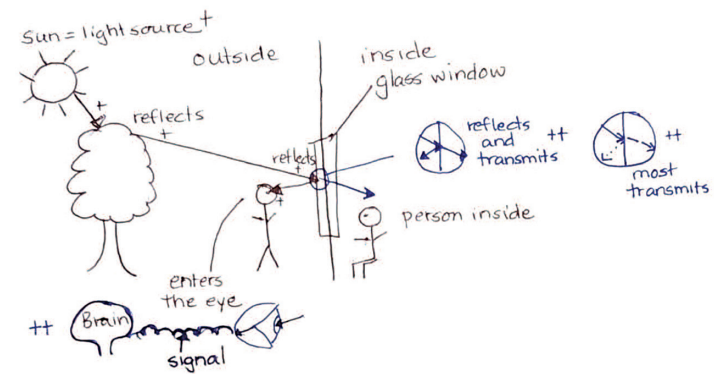 sun = light source +
outside
inside
glass window
+
reflects
+
reflects
+
+
reflects
and
transmits
++
++
most
transmits
person inside
enters
the eye
++
Brain
signal